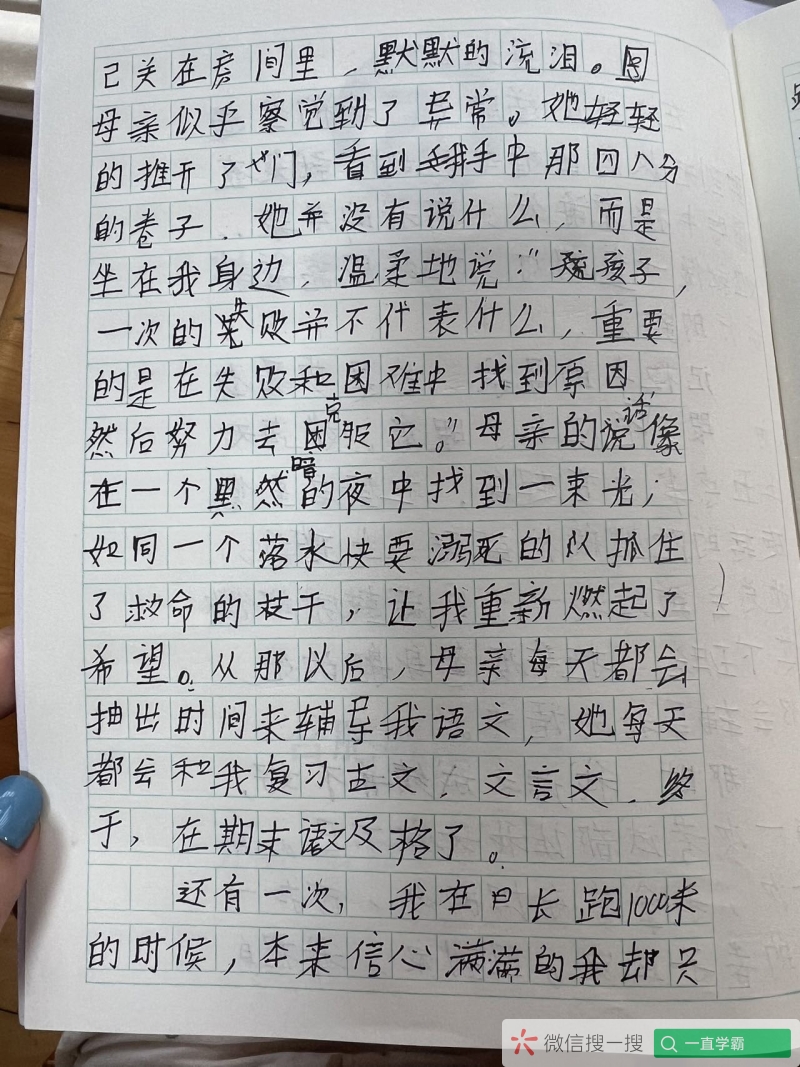 己关在房间里，默默的流泪。
母亲似乎察觉到了异常。她轻轻
的推开了门，看到我手中那四八分
的卷子，她并没有说什么，而是
坐在我身边，温柔地说：“孩子，
一次的失败并不代表什么，重要
的是在失败和困难中找到原因，
然后努力去克服它。”母亲的话像
在一个黑暗的夜中找到一束光；
如同一个落水快要溺死的人抓住
了救命的枝干，让我重新燃起了
希望。从那以后，母亲每天都会
抽出时间来辅导我语文，她每天
都会和我复习古文，文言文，终
于，在期末语文及格了。
还有一次，我在长跑1000米
的时候，本来信心满满的我却只
微信搜一搜
一直学霸